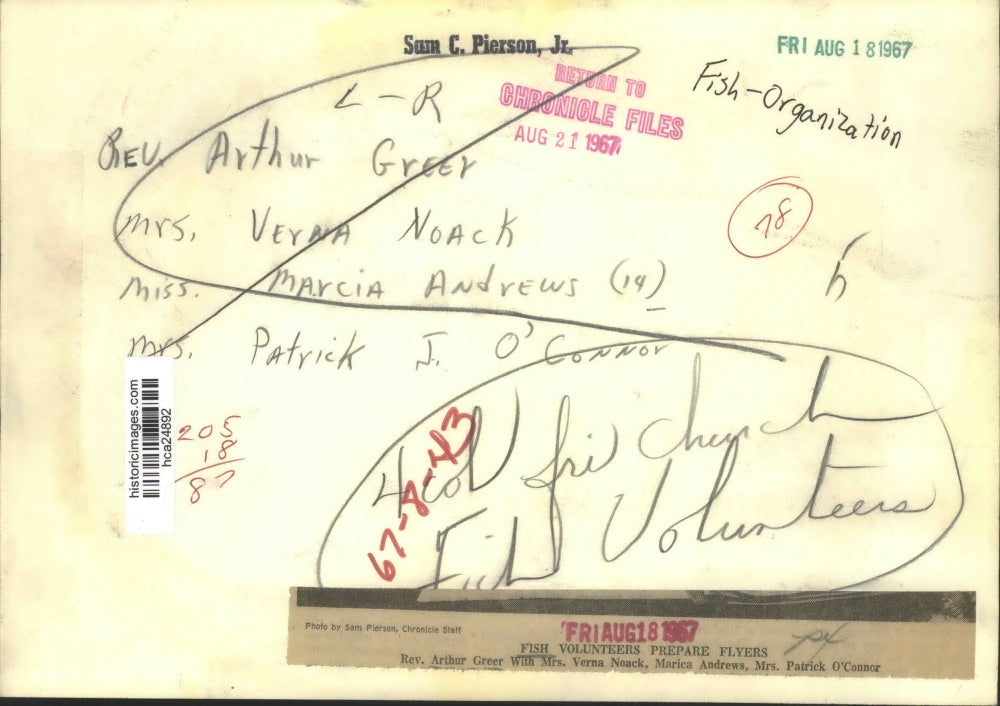 Sam C. Pierson, Jr.
FRI AUG 18 1967
RETURN TO
CHRONICLE FILES
AUG 21 1967
Fish-Organization
L-R
REV. Arthur Greer
Mrs. VERNA NOACK
Miss. MARCIA ANDREWS (14)
Mrs. Patrick J. O'CONNOR
78
historicimages.com
hca24892
205
18
67-8-43
4 col fri church
Fish Volunteers
Photo by Sam Pierson, Chronicle Staff
FRI AUG 18 1967
FISH VOLUNTEERS PREPARE FLYERS
Rev. Arthur Greer With Mrs. Verna Noack, Marica Andrews, Mrs. Patrick O'Connor